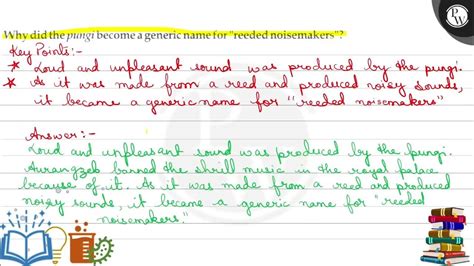 Why did the pungi become a generic name for "reeded noisemakers"?
Key Points:-
* Loud and unpleasant sound was produced by the pungi.
* As it was made from a reed and produced noisy sounds,
it became a generic name for "reeded noisemakers"
Answer:-
Loud and unpleasant sound was produced by the pungi.
Aurangzeb banned the shrill music in the royal palace
because of it. As it was made from a reed and produced
noisy sounds, it became a generic name for "reeded
noisemakers."